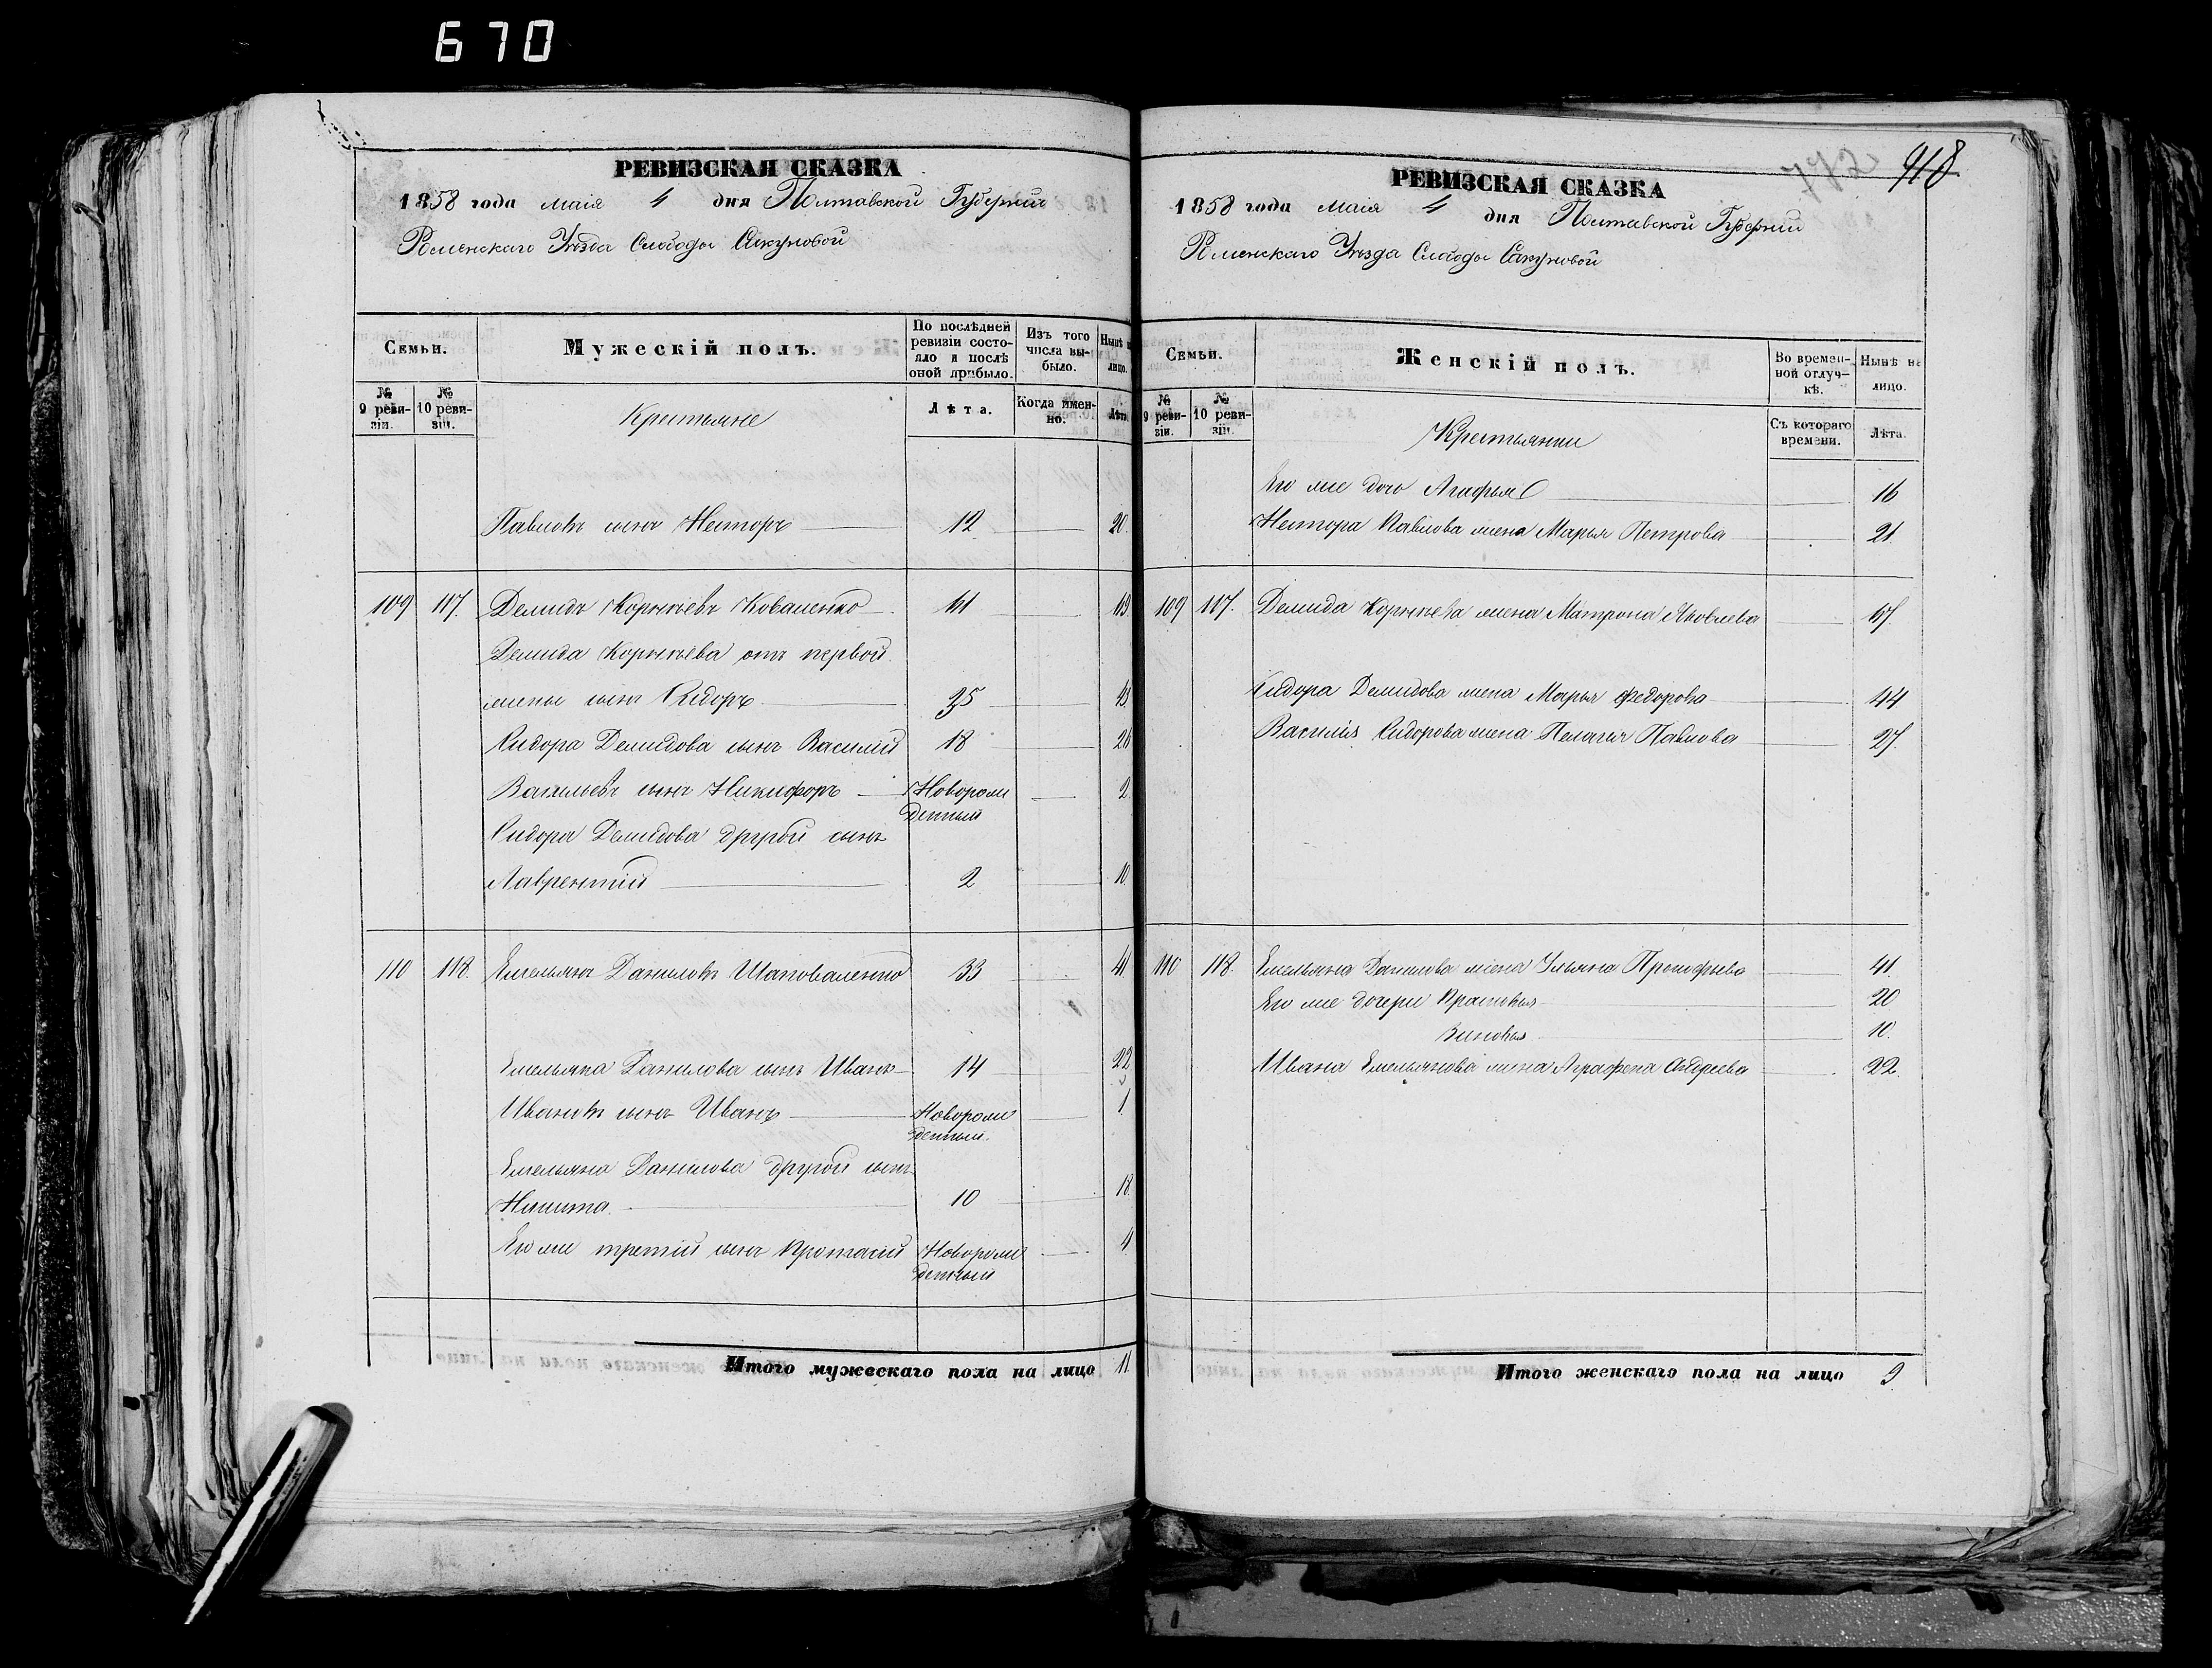 670
РЕВИЗСКАЯ СКАЗКА
1858 года маія 4 дня Полтавской Губерніи
Роменскаго Уѣзда Слободы Сакуновой
Семьи.
Мужескій полъ.
По послѣдней ревизіи состояло и послѣ оной прибыло.
Изъ того числа выбыло.
Нынѣ на лицо.
№ 9 ревизіи.
№ 10 ревизіи.
Крестьяне
Лѣта.
Когда именно.
Лѣта.
Павловъ сынъ Несторъ 12 20.
109 117. Демидъ Корнѣевъ Коваленко 61 69
Демида Корнѣева отъ первой
жены сынъ Сидоръ 35 43
Сидора Демидова сынъ Василій 18 26
Васильевъ сынъ Никифоръ Новорож
денный 2
Сидора Демидова другой сынъ
Лаврентій 2 10
110 118. Емельянъ Даниловъ Шаповаленко 33 41
Емельяна Данилова сынъ Иванъ 14 22
Ивановъ сынъ Иванъ Новорож
денный. 1
Емельяна Данилова другой сынъ
Никита 10 18.
Его же третій сынъ Протасій Новорож
денный 4
Итого мужескаго пола на лицо 11.
772 918
РЕВИЗСКАЯ СКАЗКА
1858 года маія 4 дня Полтавской Губерніи
Роменскаго Уѣзда Слободы Сакуновой
Семьи.
Женскій полъ.
Во временной отлучкѣ.
Нынѣ на лицо.
№ 9 ревизіи.
№ 10 ревизіи.
Крестьянки
Съ котораго времени.
Лѣта.
Его же дочь Агафья 16
Нестора Павлова жена Марья Петрова 21.
109 117. Демида Корнѣева жена Матрона Яковлева 67.
Сидора Демидова жена Марья Федорова 44
Василія Сидорова жена Пелагея Павлова 27.
110 118. Емельяна Данилова жена Ульяна Прокофьева 41.
Его же дочери Прасковья 20
Зиновья 10.
Ивана Емельянова жена Аграфена Андреева 22.
Итого женскаго пола на лицо 9.